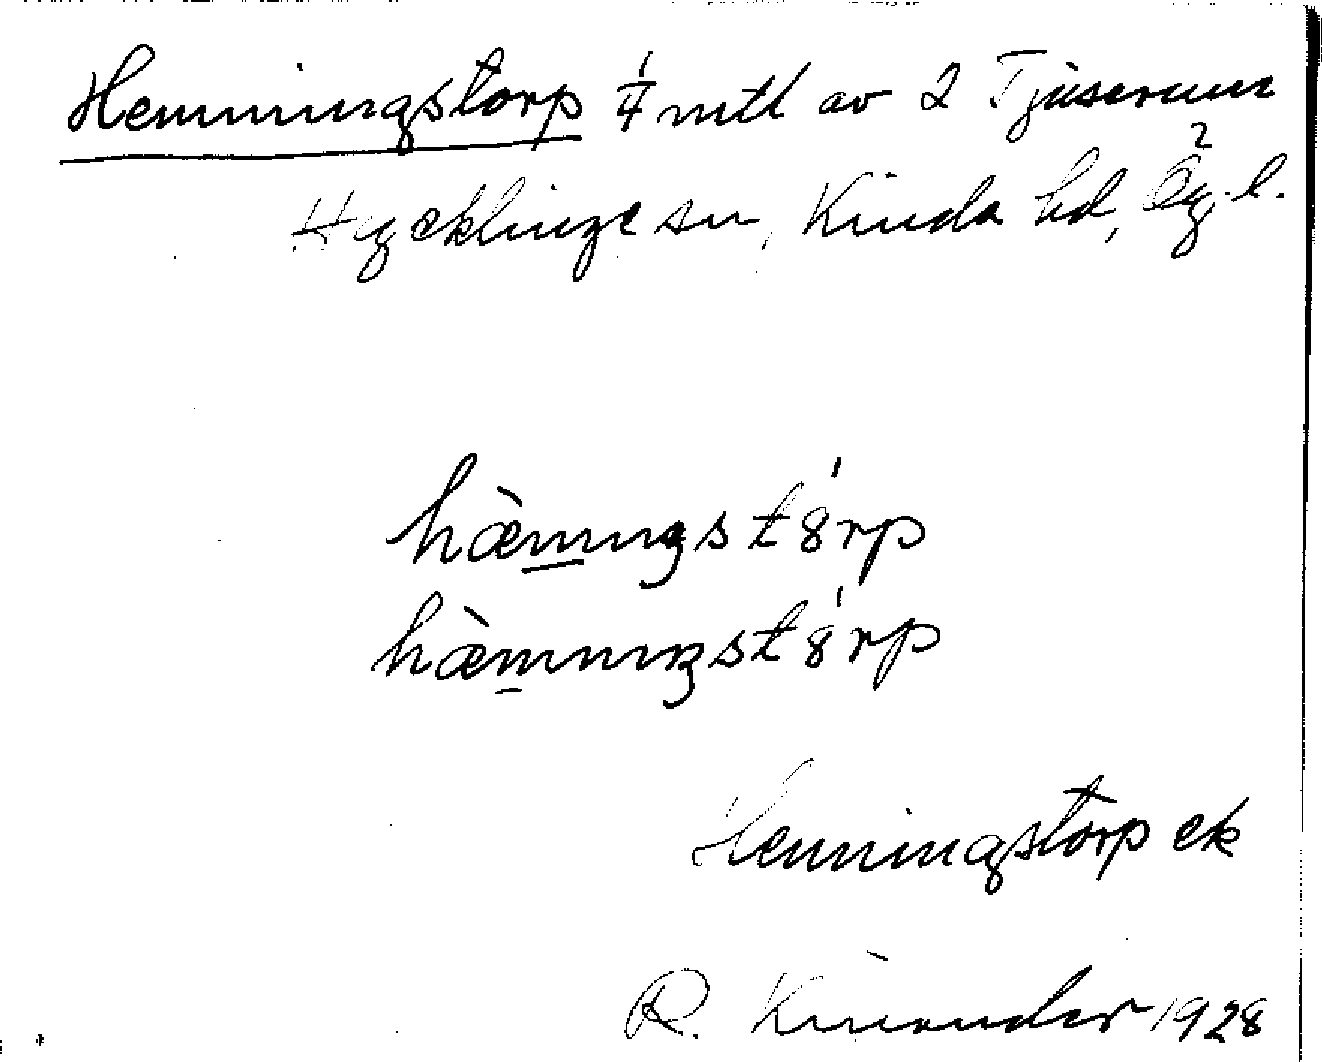 Hemmingstorp 1/4 mtl av 2 Tjuserum
Hycklinge sn, Kinda hd, Ög. l.
hæ̀mıŋstȣ́rp
hæ̀mıŋstȣ́rp
Henningstorp ek
R. Kinander 1928